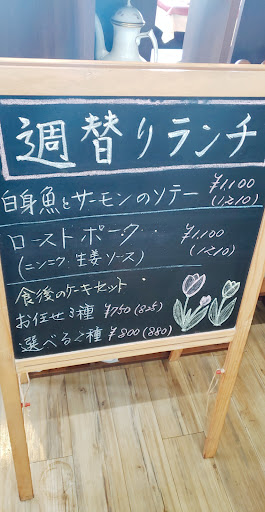 週替りランチ
白身魚とサーモンのソテー ¥1,100
(1,210)
ローストポーク・・ ¥1,100
(ニンニク・生姜ソース) (1,210)
食後のケーキセット
お任せ3種 ¥750(825)
選べる2種 ¥800(880)